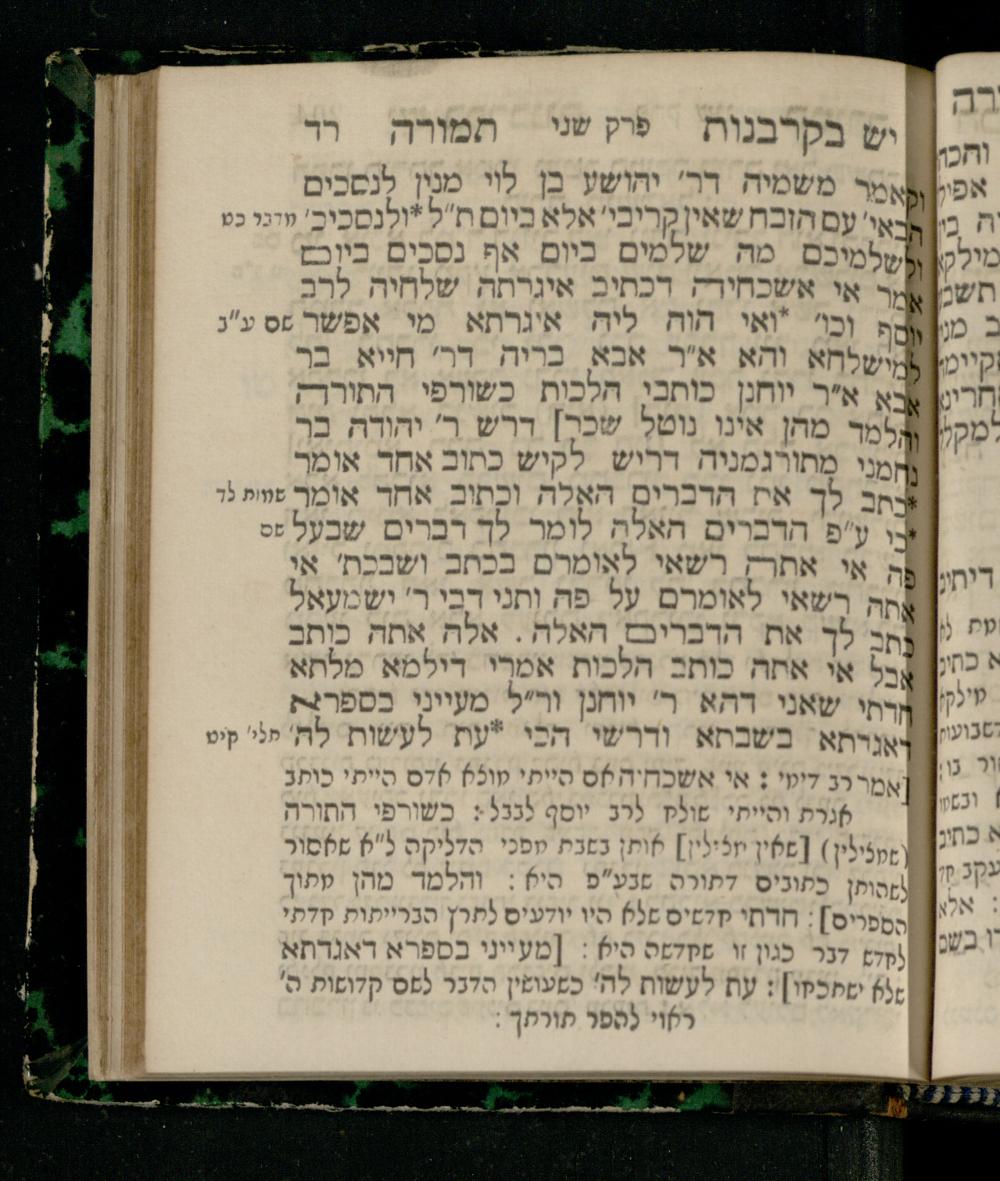 יש בקרבנות פרק שני תמורה רד
וקאמר משמיה דר׳ יהושע בן לוי מנין לנסכים
הבאי׳ עם הזבח שאין קריבי׳ אלא ביום ת״ל *ולנסכיכ׳ מדבר כט
ולשלמיכם מה שלמים ביום אף נסכים ביום
אמר אי אשכחיה דכתיב איגרתה שלחיה לרב
יוסף וכו׳ *ואי הוה ליה איגרתא מי אפשר שם ע״ב
למישלחא והא א״ר אבא בריה דר׳ חייא בר
אבא א״ר יוחנן כותבי הלכות כשורפי התורה
והלמד מהן אינו נוטל שכר] דרש ר׳ יהודה בר
נחמני מתורגמניה דריש לקיש כתוב אחד אומר
*כתב לך את הדברים האלה וכתוב אחד אומר שמות לד
*כי ע״פ הדברים האלה לומר לך דברים שבעל שם
פה אי אתה רשאי לאומרם בכתב ושבכת׳ אי
אתה רשאי לאומרם על פה ותני דבי ר׳ ישמעאל
כתב לך את הדברים האלה. אלה אתה כותב
אבל אי אתה כותב הלכות אמרי דילמא מלתא
חדתי שאני דהא ר׳ יוחנן ור״ל מעייני בספרא
דאגדתא בשבתא ודרשי הכי *עת לעשות לה׳ תלי׳ קיט
[אמר רב דימי: אי אשכחיה אם הייתי מוצא אדם הייתי כותב
אגרת והייתי שולח לרב יוסף לבבל: כשורפי התורה
(שמצילין) [שאין מצילין] אותן בשבת מפני הדליקה ל״א שאסור
לשהותן כתובים דתורה שבע״פ היא: והלמד מהן מתוך
הספרים]: חדתי קדשים שלא היו יודעים לתרץ הברייתות קדתי
לקדש דבר כגון זו שקדשה היא: [מעייני בספרא דאגדתא
שלא ישתכחו]: עת לעשות לה׳ כשעושין הדבר לשם קדושות ה׳
ראוי להפר תורתך: